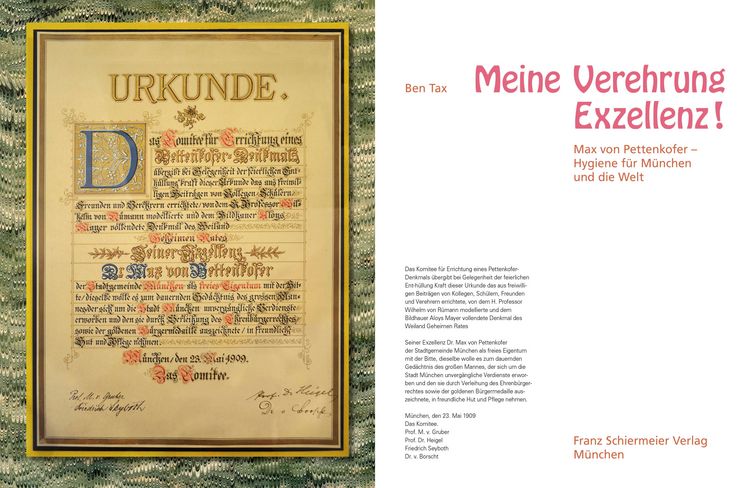 URKUNDE.
Das Komitee für Errichtung eines
Pettenkofer-Denkmals
übergibt bei Gelegenheit der feierlichen Ent-
hüllung kraft dieser Urkunde das aus freiwil-
ligen Beiträgen von Kollegen, Schülern,
Freunden und Verehrern errichtete, von dem H. Professor Wil-
helm von Rümann modellierte und dem Bildhauer Aloys
Mayer vollendete Denkmal des Weiland
Geheimen Rates
Seiner Exzellenz
Dr Max von Pettenkofer
der Stadtgemeinde München als freies Eigentum mit der Bit-
te, dieselbe wolle es zum dauernden Gedächtnis des großen Man-
nes, der sich um die Stadt München unvergängliche Verdienste
erworben und den sie durch Verleihung des Ehrenbürgerrechtes
sowie der goldenen Bürgermedaille auszeichnete, in freundliche
Hut und Pflege nehmen.
München, den 23. Mai 1909.
Das Komitee.
Prof. M. v. Gruber
Friedrich Seyboth
Prof. Dr. Heigel
Dr. v. Borscht
Ben Tax
Meine Verehrung
Exzellenz!
Max von Pettenkofer –
Hygiene für München
und die Welt
Das Komitee für Errichtung eines Pettenkofer-
Denkmals übergibt bei Gelegenheit der feierlichen
Ent-hüllung Kraft dieser Urkunde das aus freiwilli-
gen Beiträgen von Kollegen, Schülern, Freunden
und Verehrern errichtete, von dem H. Professor
Wilhelm von Rümann modellierte und dem
Bildhauer Aloys Mayer vollendete Denkmal des
Weiland Geheimen Rates
Seiner Exzellenz Dr. Max von Pettenkofer
der Stadtgemeinde München als freies Eigentum
mit der Bitte, dieselbe wolle es zum dauernden
Gedächtnis des großen Mannes, der sich um die
Stadt München unvergängliche Verdienste erwor-
ben und den sie durch Verleihung des Ehrenbürger-
rechtes sowie der goldenen Bürgermedaille aus-
zeichnete, in freundliche Hut und Pflege nehmen.
München, den 23. Mai 1909
Das Komitee.
Prof. M. v. Gruber
Prof. Dr. Heigel
Friedrich Seyboth
Dr. v. Borscht
Franz Schiermeier Verlag
München